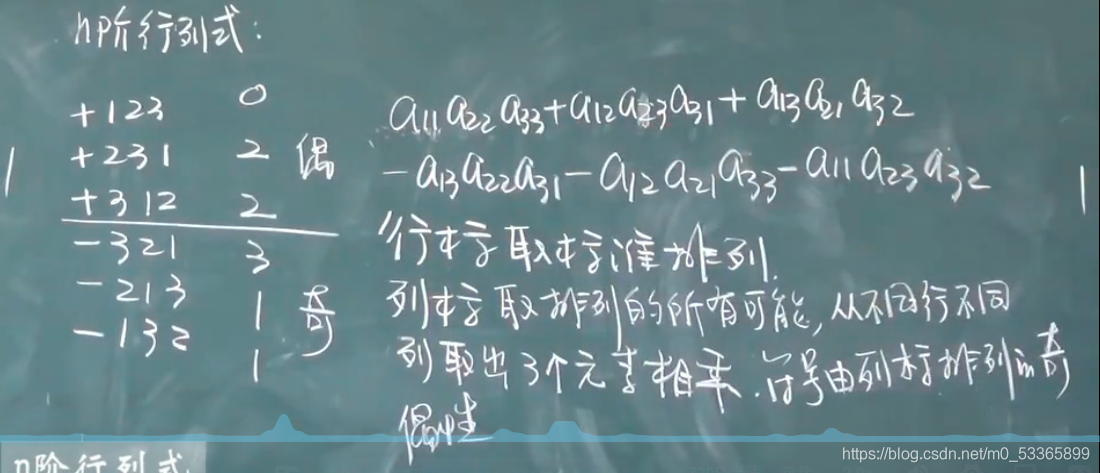 n阶行列式:
+123 0
+231 2 偶
+312 2
-321 3
-213 1 奇
-132 1
a11a22a33+a12a23a31+a13a21a32
-a13a22a31-a12a21a33-a11a23a32
行标取标准排列.
列标取排列的所有可能,从不同行不同
列取出3个元素相乘.符号由列标排列的奇
偶性
n阶行列式
https://blog.csdn.net/m0_53365899